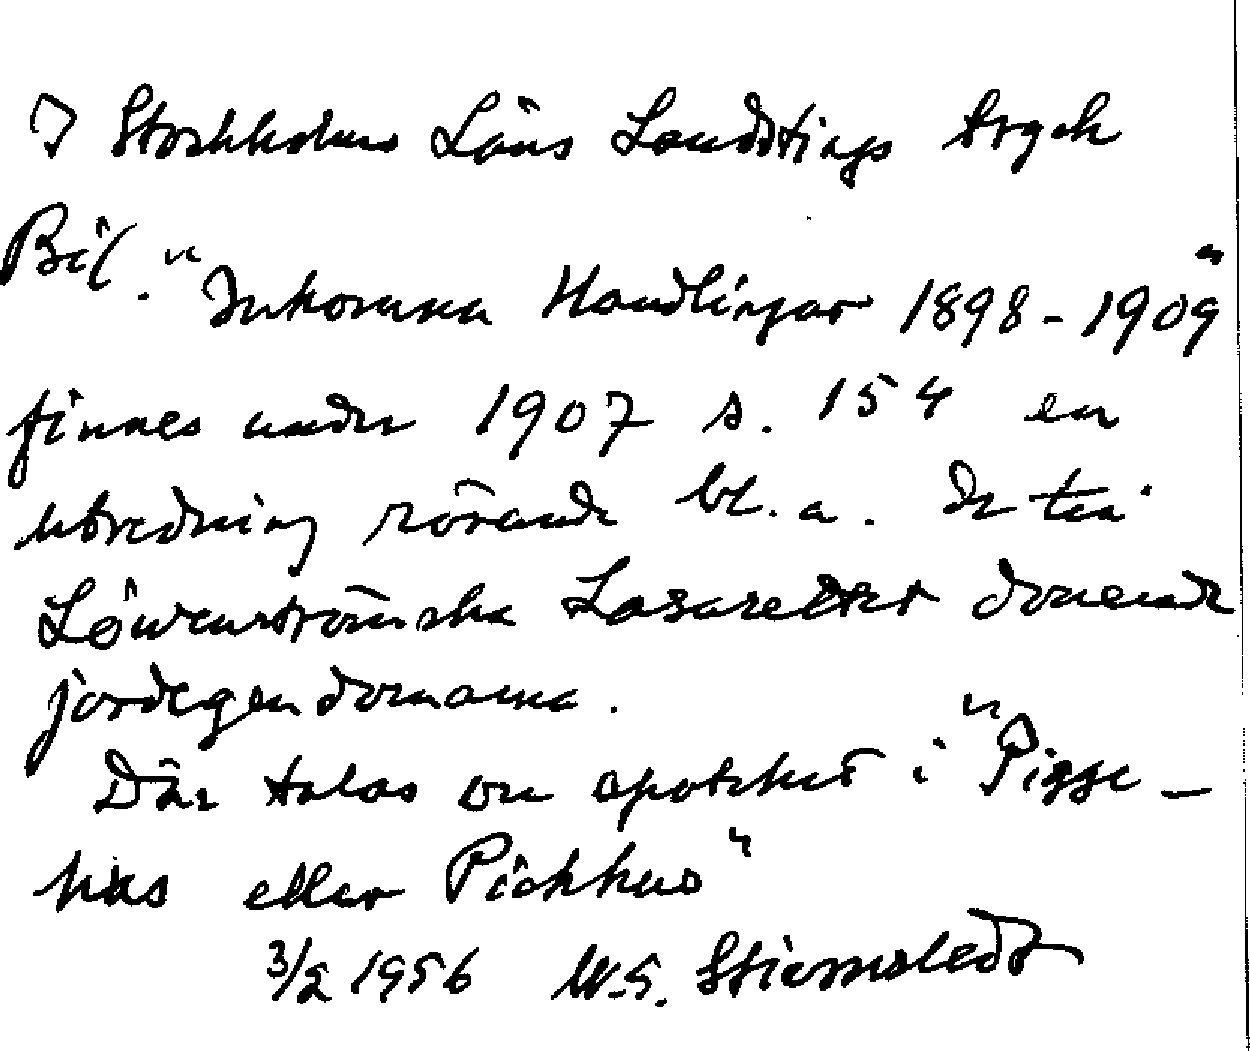 I Stockholms Läns Landstings tryck
Bil. "Inkomna Handlingar 1898-1909"
finnes under 1907 s. 154 en
utredning rörande bl.a. de till
Löwenströmska Lasarettet donerade
jordegendomarna.
Där talas om apoteket i "Pigge-
hus eller Pickhus"
3/2 1956 W.S. Stiernstedt